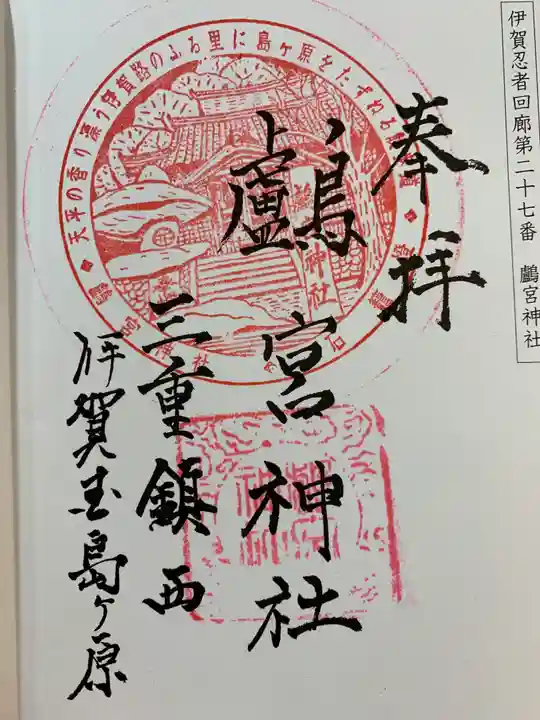 伊賀忍者回廊第二十七番 鸕宮神社
奉拝
鸕宮神社
三重鎮西
伊賀国島ヶ原
天平の香り漂う伊賀路のふる里に島ヶ原をたずねる
神社